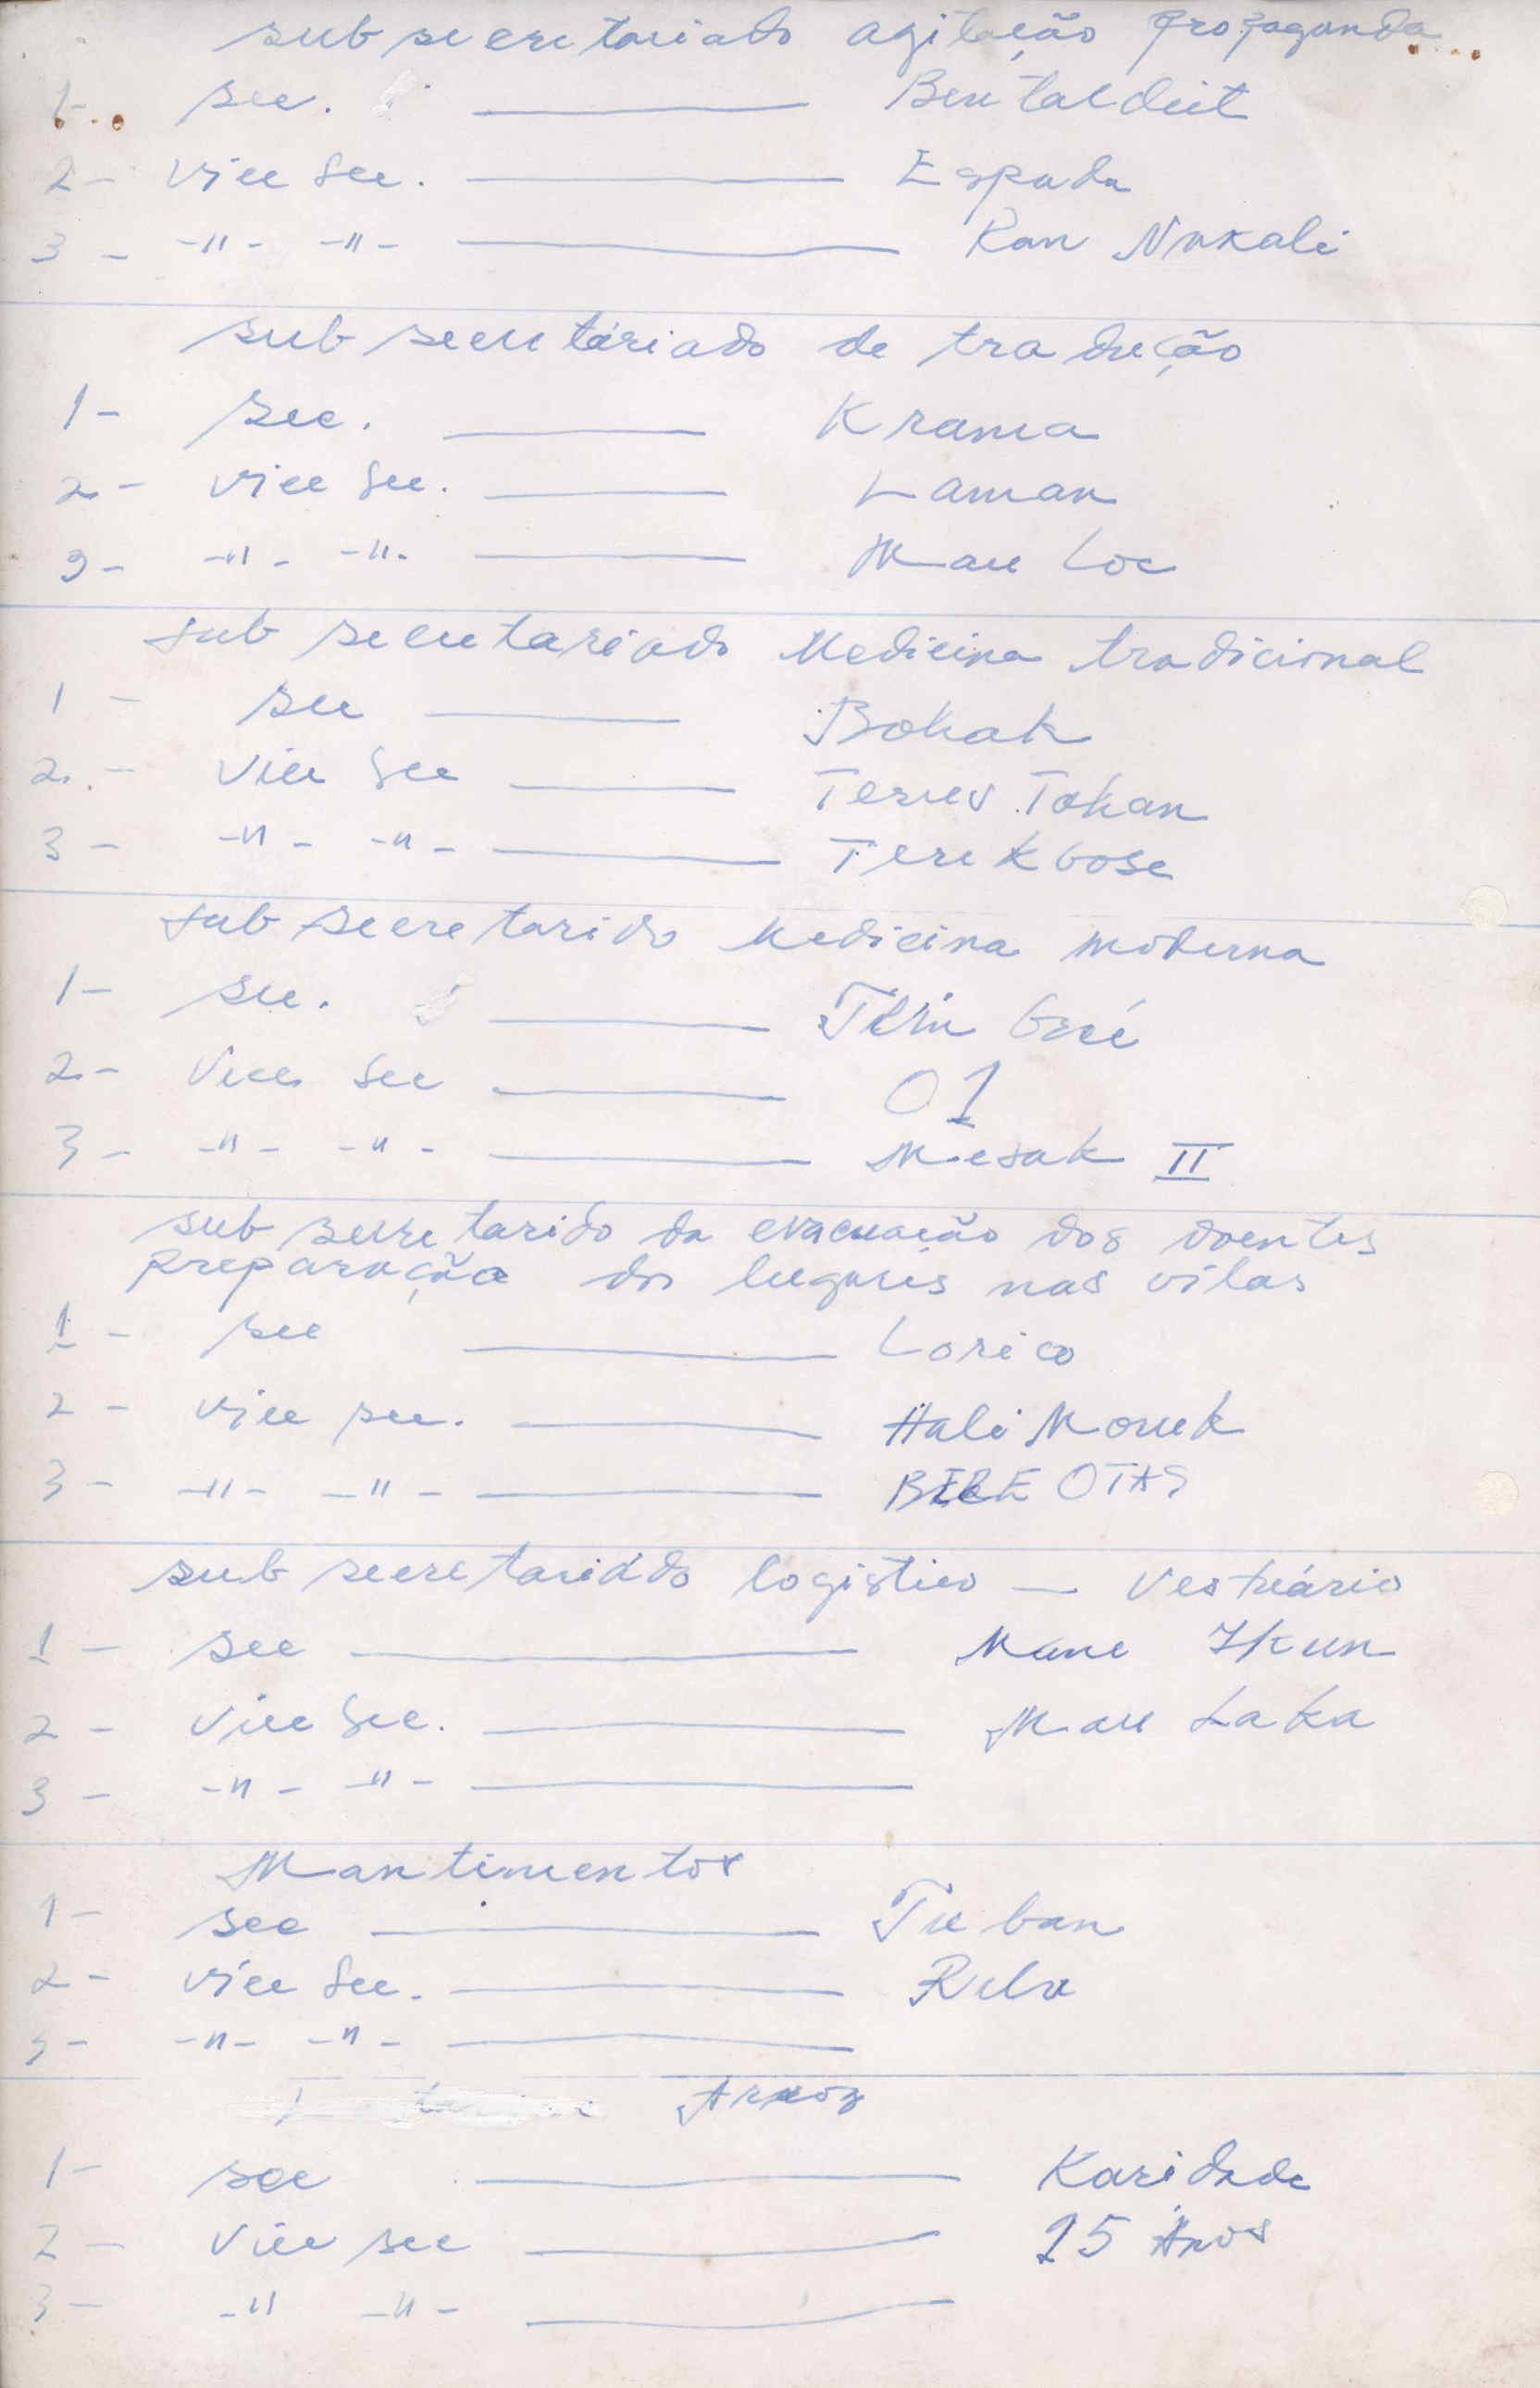 sub secretariado agitação propaganda
1- sec. ——— Beretaldeit
2- vice sec. ——— Espada
3 - -"- -"- ——— Ran Nakali
sub secretáriado de tradução
1- sec. ——— Krama
2- vice sec. ——— Laman
3- -"- -"- ——— Mau Loc
sub secretariado Medicina tradicional
1 - sec ——— Bohak
2. - Vice sec ——— Terus Tohan
3 - -"- -"- ——— Terekbose
sub secretarido Medicina moderna
1- sec. ———
2- Vice sec ——— 01
3- -"- -"- ——— Mesak II
sub secretarido da evacuação dos doentes
preparação dos lugares nas vilas
1 - sec ——— Lorico
2 - vice sec. ——— Hali Moruk
3 - -"- -"- ——— BERE OTAS
sub secretariádo logistico — Vestuário
1 - sec ——— Mane Ikun
2 - Vice sec. ——— Mau Laka
3 - -"- -"- ———
Mantimentos
1- sec ——— Tuban
2- vice sec. ——— Rula
3- -"- -"- ———
Arroz
1- sec ——— Karidade
2 - Vice sec ——— 25 Anos
3- -" -"- ———